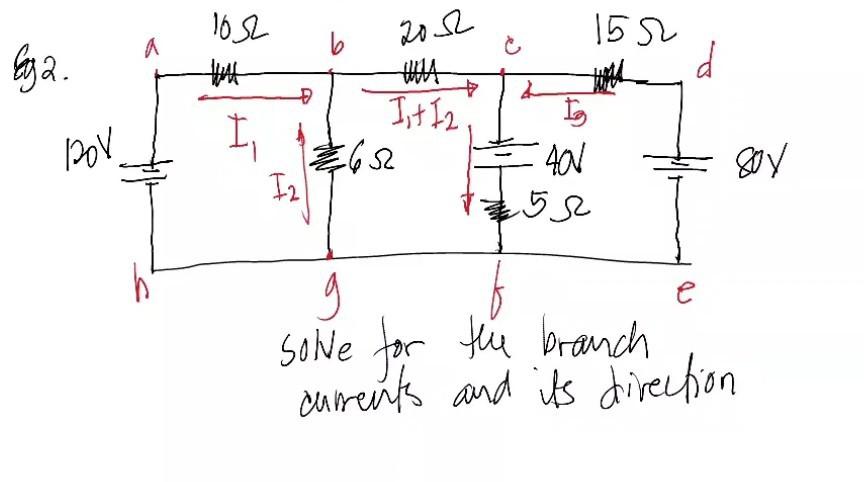 Eg 2.
a
10Ω
b
20Ω
c
15Ω
d
I₁
I₁+I₂
I₃
120V
I₂
6Ω
40V
5Ω
80V
h
g
f
e
solve for the branch
currents and its direction